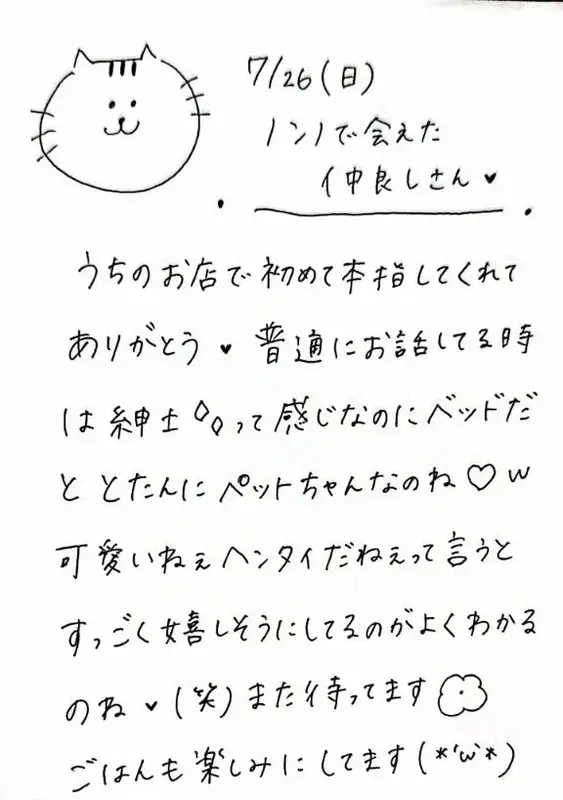 7/26(日)
ノンノで会えた
仲良しさん♥
うちのお店で初めて本指してくれて
ありがとう♥ 普通にお話してる時
は紳士◇◇って感じなのにベッドだ
と とたんにペットちゃんなのね♡w
可愛いねぇヘンタイだねぇって言うと
すっごく嬉しそうにしてるのがよくわかる
のね♥(笑)また待ってます
ごはんも楽しみにしてます(*'ω'*)